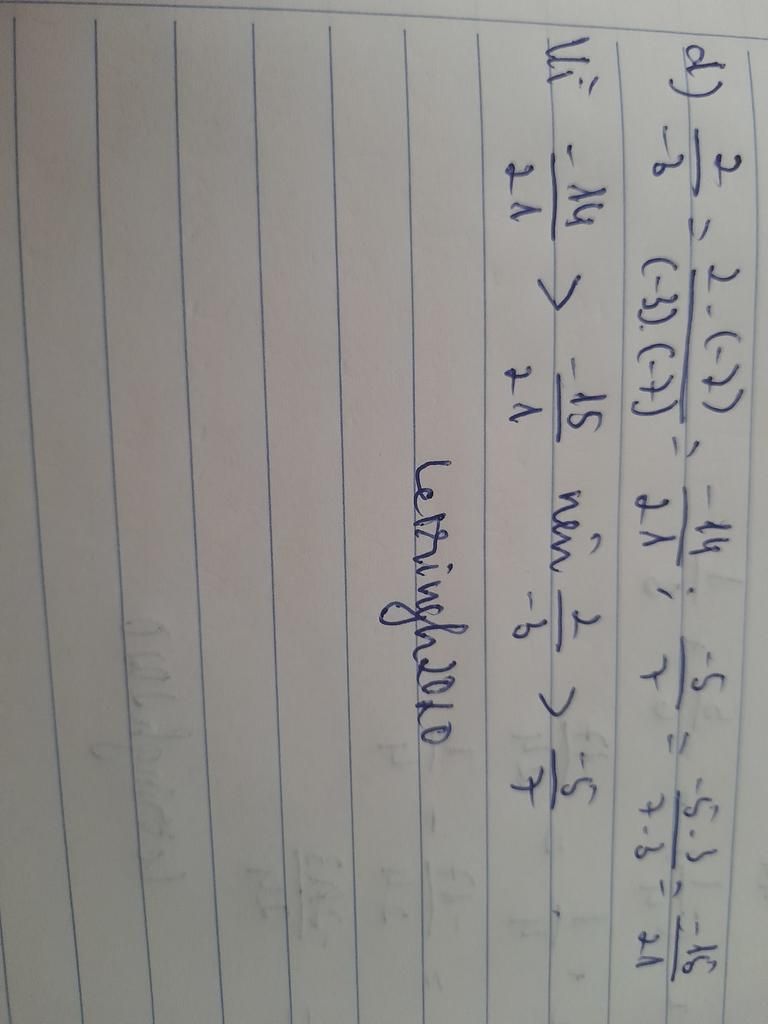 d) 2/-3 = 2.(-7)/(-3).(-7) = -14/21; -5/7 = -5.3/7.3 = -15/21
Vì -14/21 > -15/21 nên 2/-3 > -5/7
letringh2020